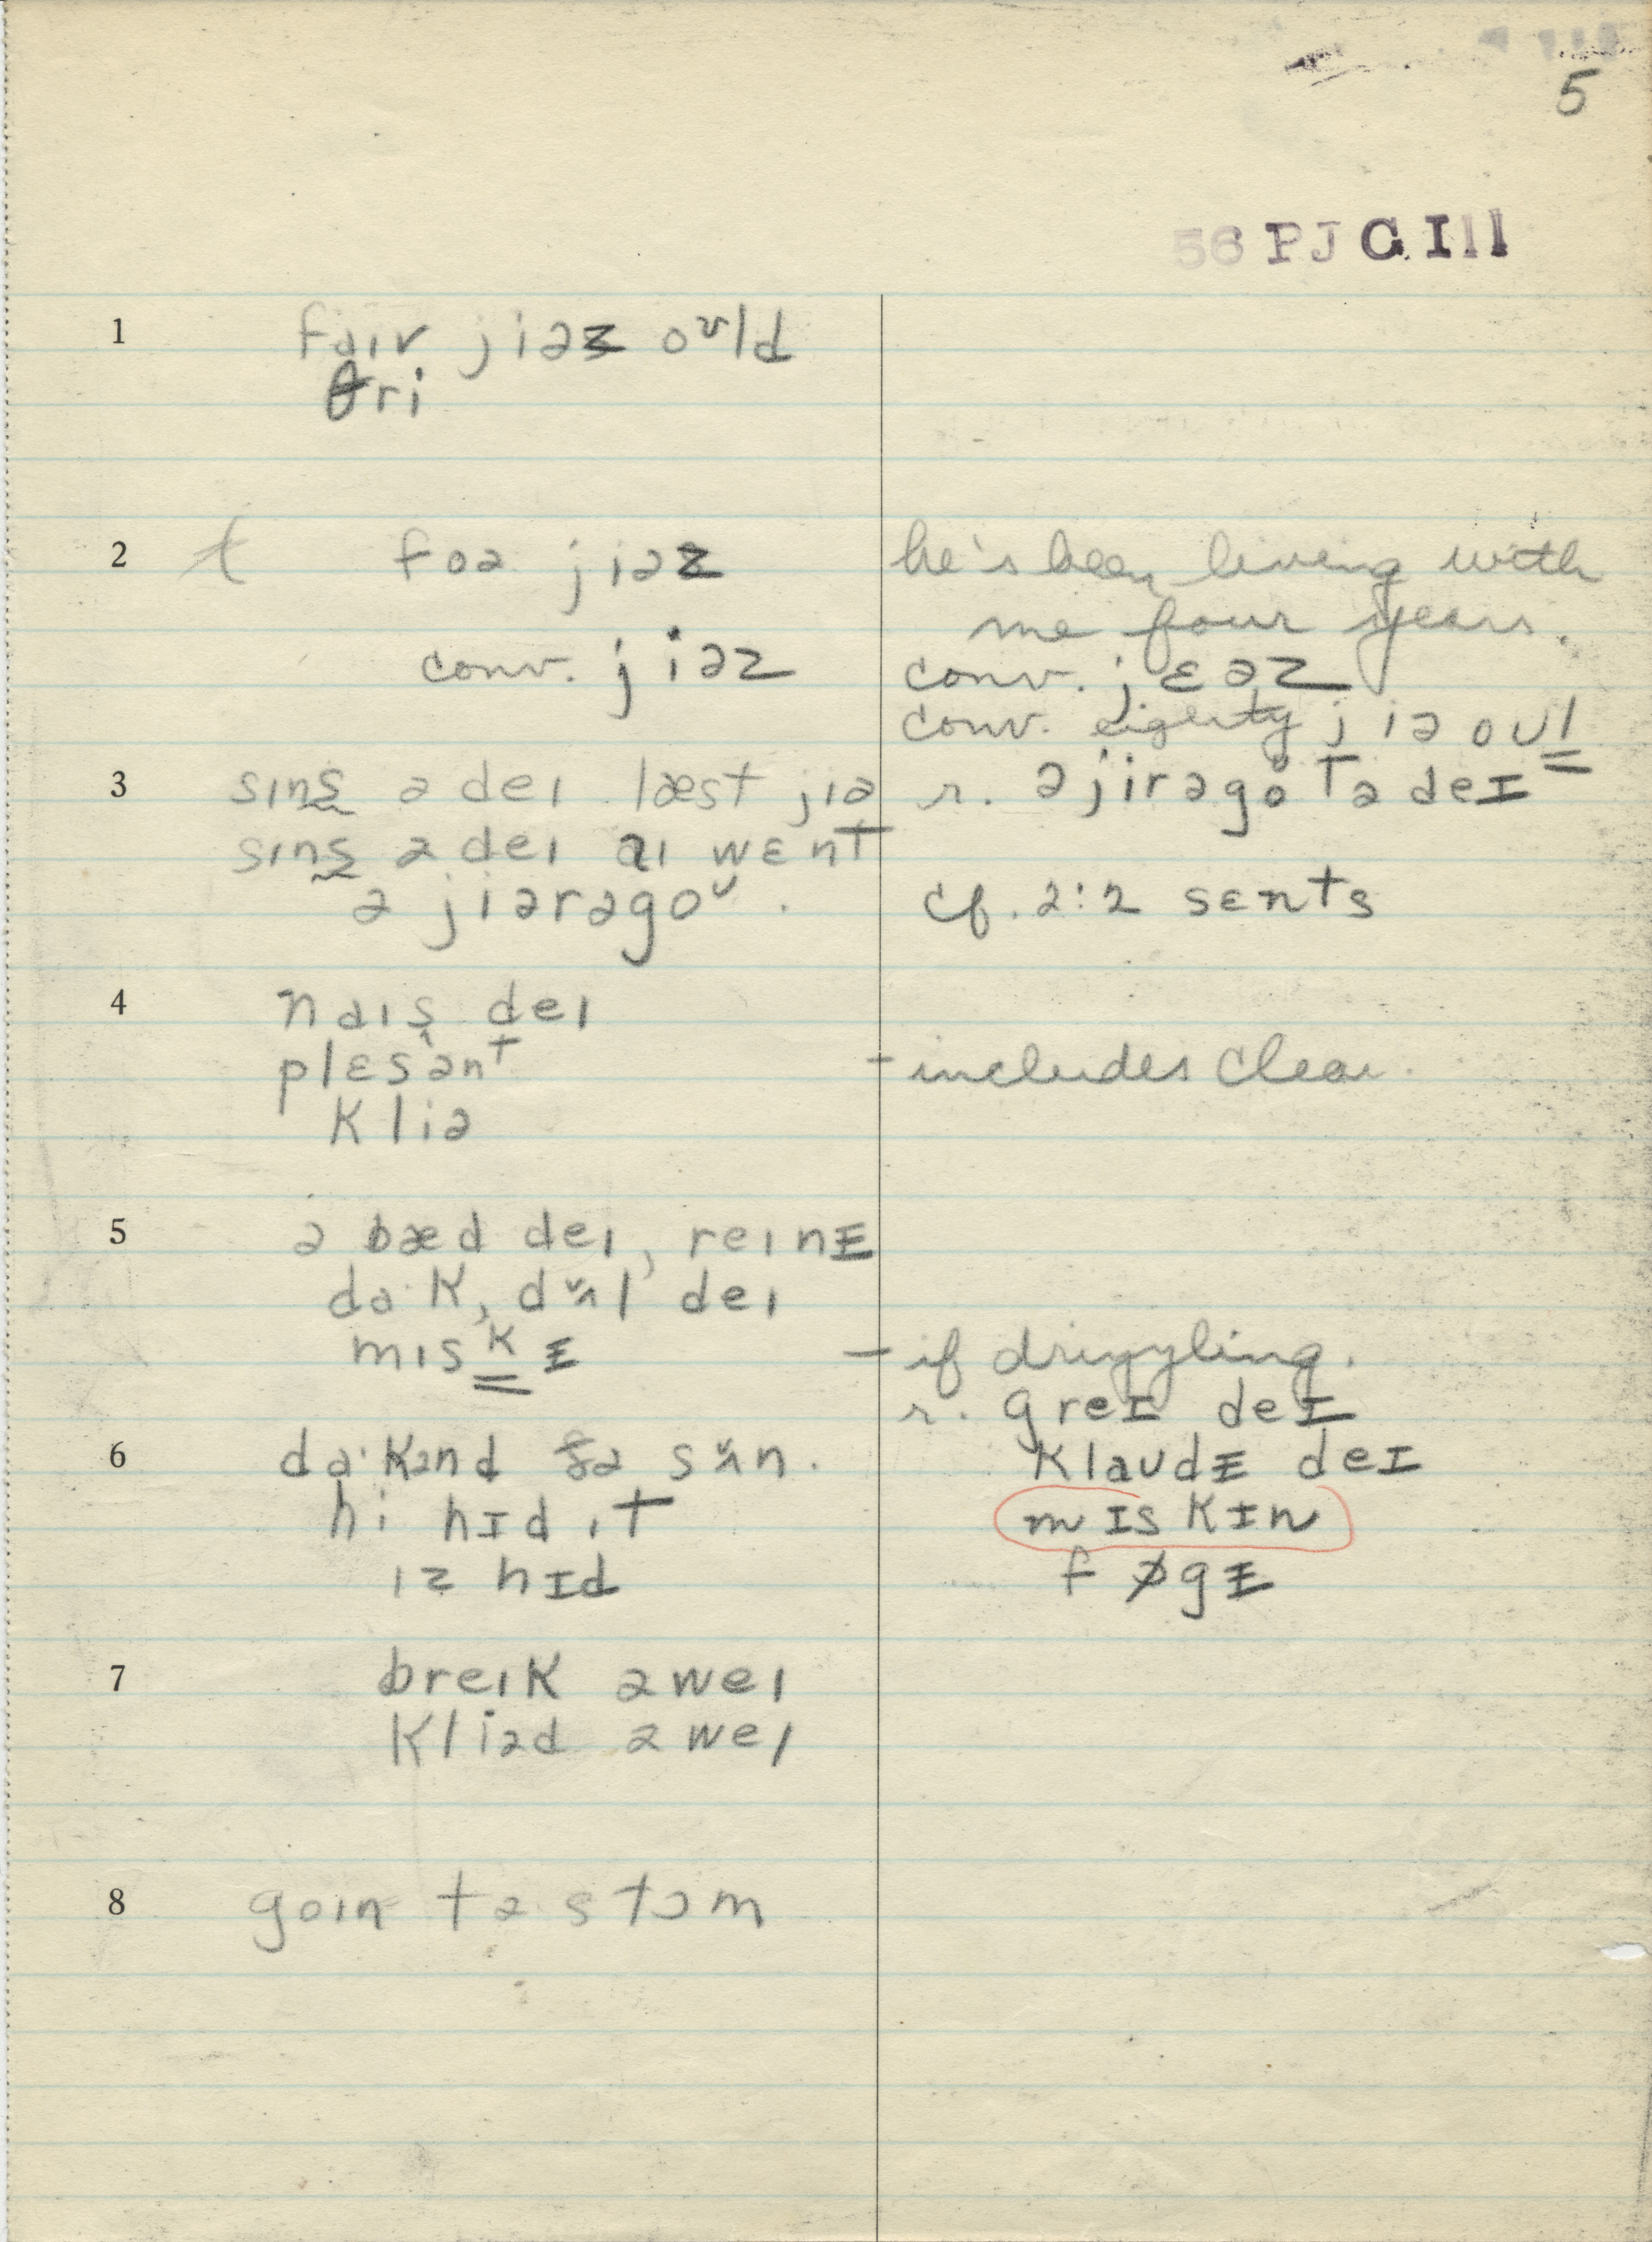 5
56 PJG Ill
1 faɪv jiəz oᶷld
θri
2 t foə jiəz
he's been living with
me four years.
conv. jiəz
conv. jɛəz
conv. eighty jiə oul
3 sɪns ə deɪ læst jiə
r. ə jirəgo tə deɪ
sɪns ə deɪ aɪ wɛnt
ə jiərəgoᶷ.
cf. 2:2 sɛnts
4 naɪs deɪ
plɛsənt
– includes clear.
kliə
5 ə bæd deɪ, reɪnɪ
da·k, dʌl deɪ
mɪskɪ
– if drizzling.
r. greɪ deɪ
6 da·kənd ðə sʌn.
klaudɪ deɪ
hi hɪd ɪt
mɪskɪn
ɪz hɪd
føgɪ
7 breɪk əweɪ
kliəd əweɪ
8 goɪn tə stɔm